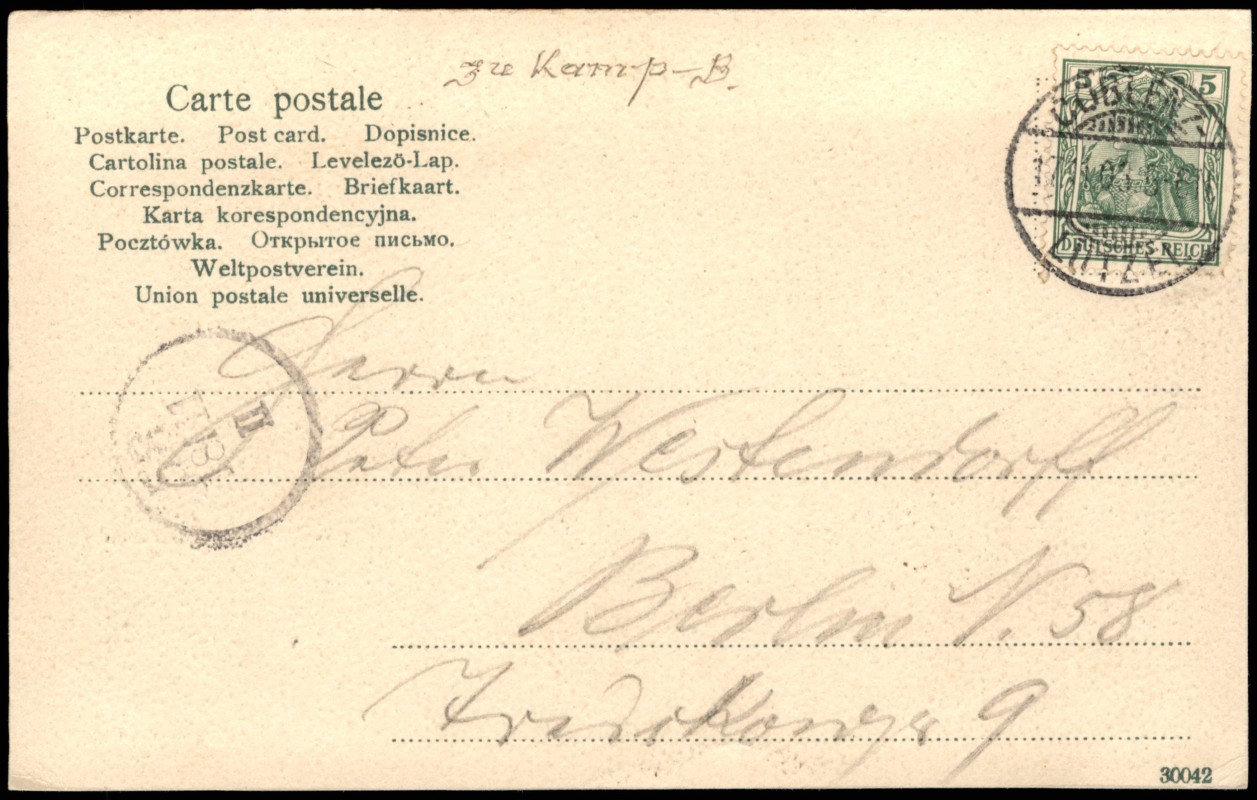 zu Kamp-B.
Carte postale
Postkarte. Post card. Dopisnice.
Cartolina postale. Levelező-Lap.
Correspondenzkarte. Briefkaart.
Karta korespondencyjna.
Pocztówka. Открытое письмо.
Weltpostverein.
Union postale universelle.
5 5
COBLENZ
LÜTZEL
DEUTSCHES REICH
Herrn
Peter Westendorff
Berlin N. 58
9
30042